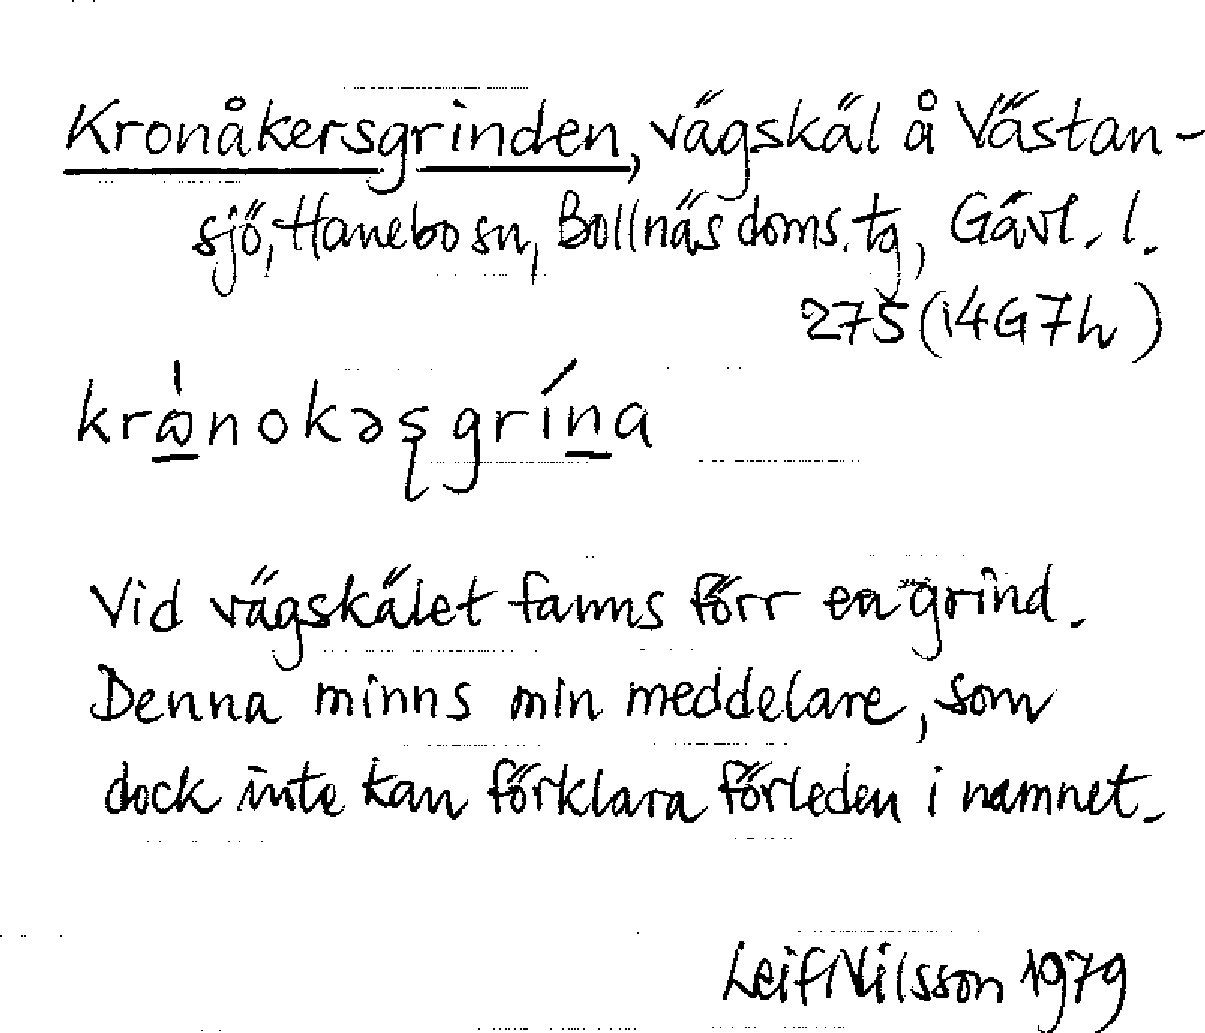 Kronåkersgrinden, vägskäl å Västan-
sjö, Hanebo sn, Bollnäs doms. tg, Gävl. l.
275 (14G7h)
krὼ̲nokəşgrín̲a
Vid vägskälet fanns förr en grind.
Denna minns min meddelare, som
dock inte kan förklara förleden i namnet.
Leif Nilsson 1979